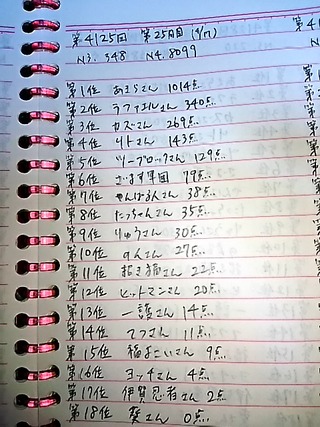 第4125回 第25月目 (4/7)
N3. 348 N4. 8099
第1位 あきらさん 1014点
第2位 ラファエルさん 340点
第3位 カズさん 269点
第4位 リトさん 143点
第5位 ツーブロックさん 129点
第6位 ざます軍団 79点
第7位 やんばるんさん 38点
第8位 にっちゃんさん 35点
第9位 りゅうさん 30点
第10位 のんさん 27点
第11位 招き猫さん 22点
第12位 ヒットマンさん 20点
第13位 一護さん 14点
第14位 てつさん 11点
第15位 福よこいさん 9点
第16位 ヨッチさん 4点
第17位 伊賀忍者さん 2点
第18位 葵さん 0点